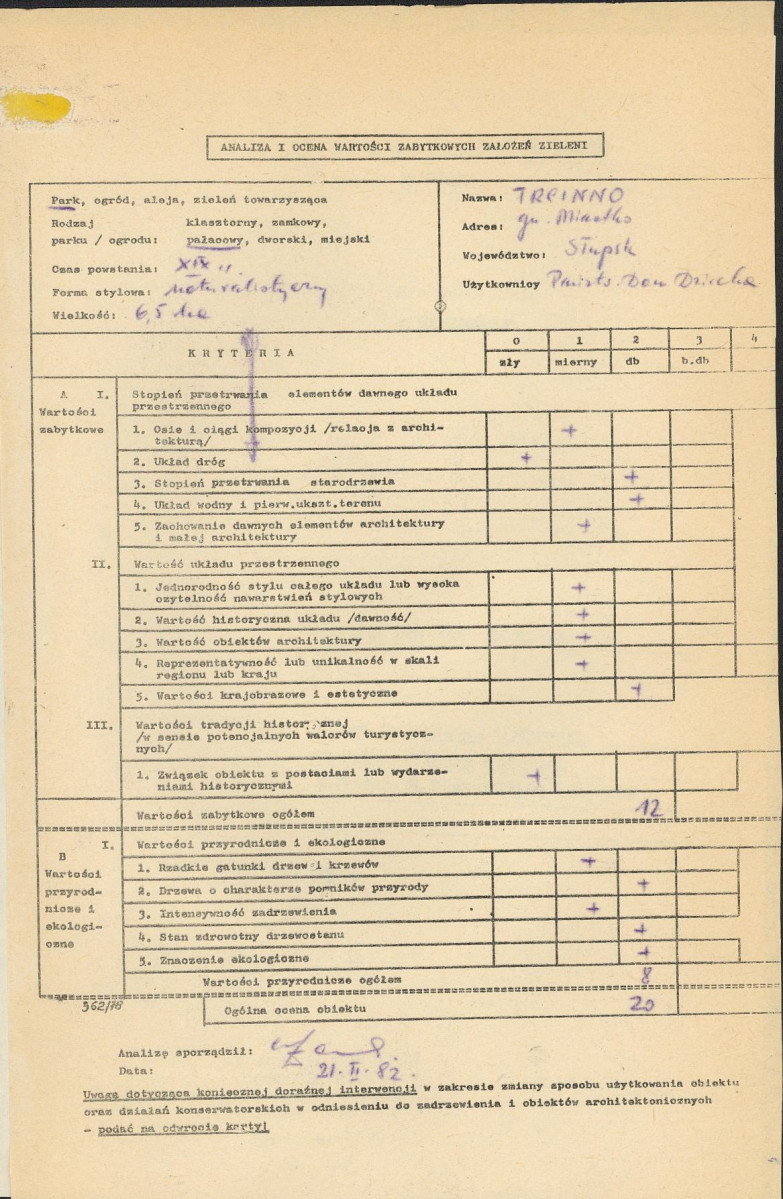 ANALIZA I OCENA WARTOŚCI ZABYTKOWYCH ZAŁOŻEŃ ZIELENI
Park, ogród, aleja, zieleń towarzysząca
Rodzaj klasztorny, zamkowy,
parku / ogrodu: pałacowy, dworski, miejski
Czas powstania: XIX w.
Forma stylowa: naturalistyczny
Wielkość: 6,5 ha
Nazwa: TRCINNO
Adres: gm. Miastko
Województwo: Słupsk
Użytkownicy Państw. Dom Dziecka
KRYTERIA
0 1 2 3 4
zły mierny db b.db
A I. Stopień przetrwania elementów dawnego układu
przestrzennego
Wartości
zabytkowe
1. Osie i ciągi kompozycji /relacja z archi-
tekturą/ +
2. Układ dróg +
3. Stopień przetrwania starodrzewia +
4. Układ wodny i pierw.ukszt.terenu +
5. Zachowanie dawnych elementów architektury
i małej architektury +
II. Wartość układu przestrzennego
1. Jednorodność stylu całego układu lub wysoka
czytelność nawarstwień stylowych +
2. Wartość historyczna układu /dawność/ +
3. Wartość obiektów architektury +
4. Reprezentatywność lub unikalność w skali
regionu lub kraju +
5. Wartości krajobrazowe i estetyczne +
III. Wartości tradycji historycznej
/w sensie potencjalnych walorów turystycz-
nych/
1. Związek obiektu z postaciami lub wydarze-
niami historycznymi +
Wartości zabytkowe ogółem 12
I. Wartości przyrodnicze i ekologiczne
B
Wartości
przyrod-
nicze i
ekologi-
czne
1. Rzadkie gatunki drzew i krzewów +
2. Drzewa o charakterze pomników przyrody +
3. Intensywność zadrzewienia +
4. Stan zdrowotny drzewostanu +
5. Znaczenie ekologiczne +
Wartości przyrodnicze ogółem 8
362/78
Ogólna ocena obiektu 20
Analizę sporządził:
Data: 21.II.82.
Uwaga dotycząca koniecznej doraźnej interwencji w zakresie zmiany sposobu użytkowania obiektu
oraz działań konserwatorskich w odniesieniu do zadrzewienia i obiektów architektonicznych
- podać na odwrocie karty!